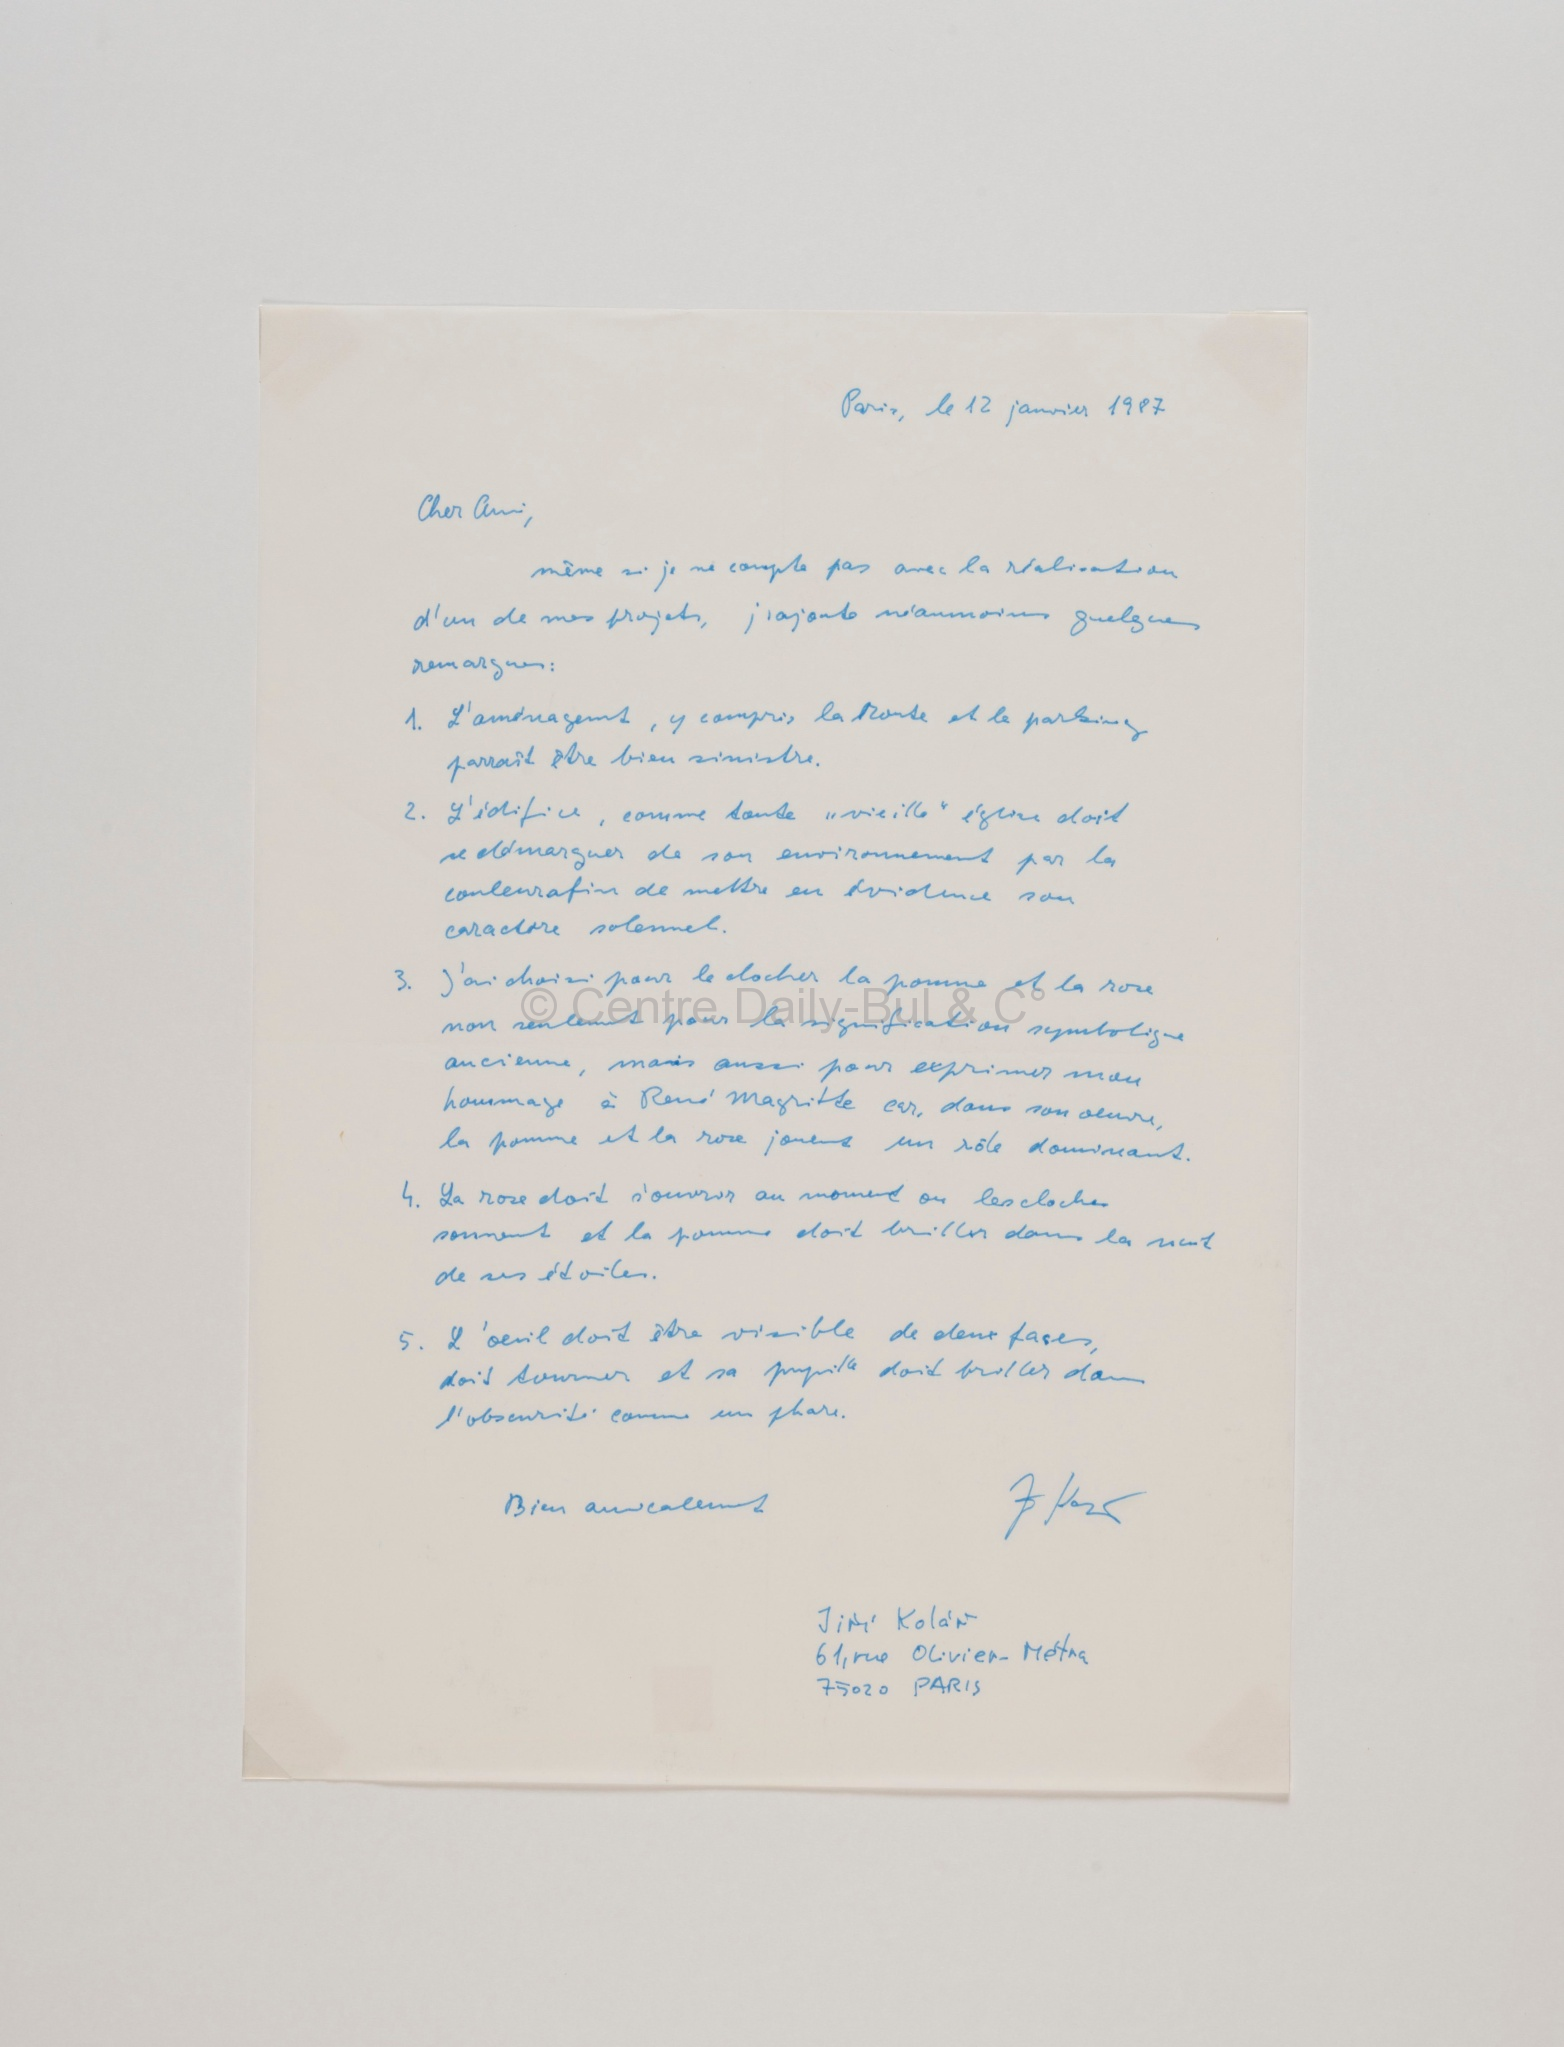 Paris, le 12 janvier 1987
Cher Ami,
même si je ne compte pas avec la réalisation
d'un de mes projets, j'rajoute néanmoins quelques
remarques:
1. L'aménagemt, y compris la Route et le parking
parraît être bien sinistre.
2. L'édifice, comme toute „vieille“ église doit
se démarquer de son environnement par la
couleur afin de mettre en évidence son
caractère solennel.
3. J'ai choisi pour le clocher la pomme et la rose
© Centre Daily-Bul & C°
non seulemt pour la signification symbolique
ancienne, mais aussi pour exprimer mon
hommage à René Magritte car, dans son oeuvre,
la pomme et la rose jouent un rôle dominant.
4. La rose doit s'ouvrir au moment ou les cloches
sonnent et la pomme doit briller dans la nuit
de ses étoiles.
5. L'oeuil doit être visible de deux faces,
doit tourner et sa pupille doit briller dans
l'obscurité comme un phare.
Bien amicalement
Jiří Kolář
61, rue Olivier-Métra
75020 PARIS